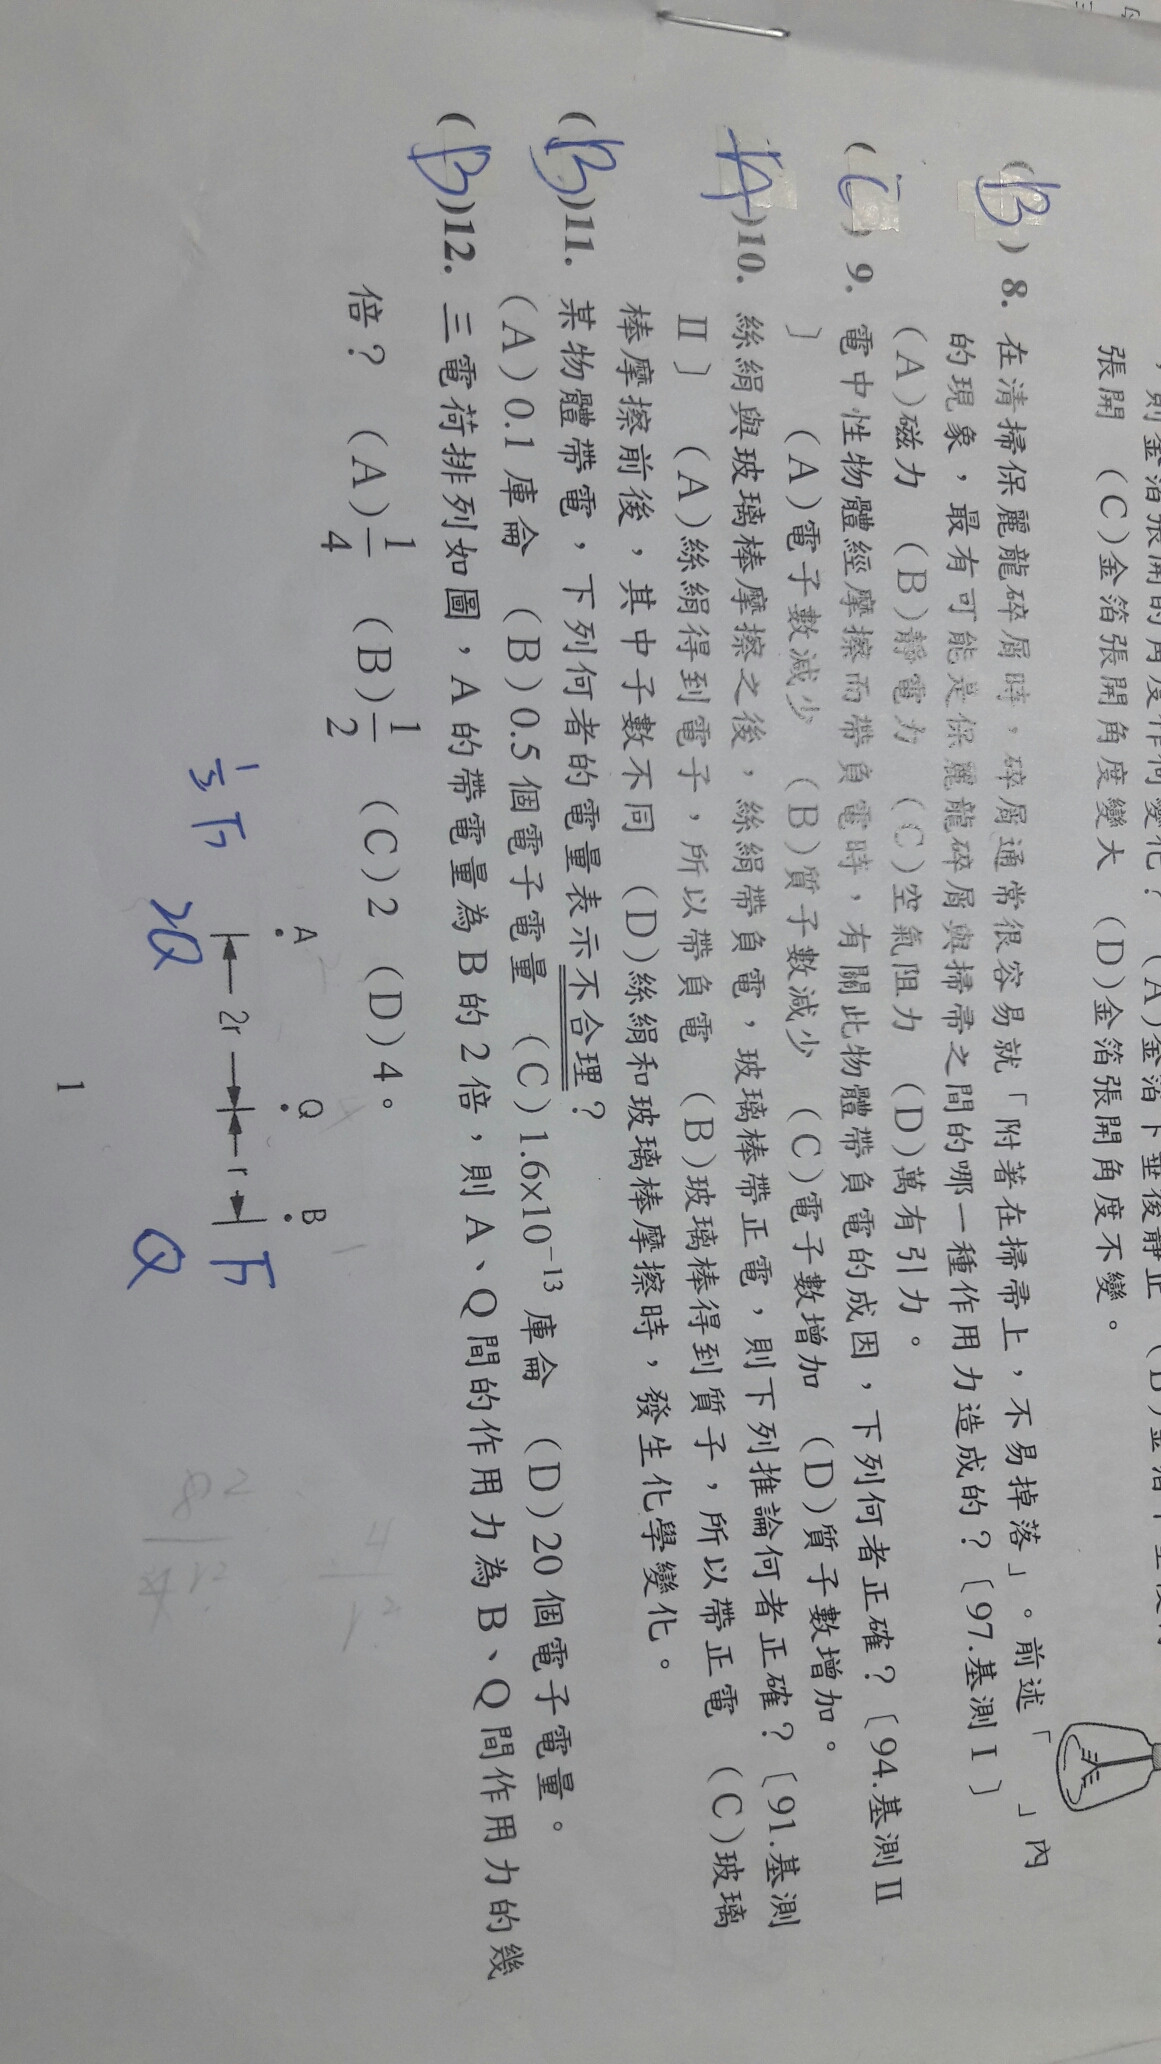 張開 (C)金箔張開角度變大 (D)金箔張開角度不變。
(B) 8. 在清掃保麗龍碎屑時，碎屑通常很容易就「附著在掃帚上，不易掉落」。前述「 」內
的現象，最有可能是保麗龍碎屑與掃帚之間的哪一種作用力造成的？〔97.基測Ⅰ〕
(A)磁力 (B)靜電力 (C)空氣阻力 (D)萬有引力。
(C) 9. 電中性物體經摩擦而帶負電時，有關此物體帶負電的成因，下列何者正確？〔94.基測Ⅱ
〕 (A)電子數減少 (B)質子數減少 (C)電子數增加 (D)質子數增加。
(A)10. 絲絹與玻璃棒摩擦之後，絲絹帶負電，玻璃棒帶正電，則下列推論何者正確？〔91.基測
Ⅱ〕 (A)絲絹得到電子，所以帶負電 (B)玻璃棒得到質子，所以帶正電 (C)玻璃
棒摩擦前後，其中子數不同 (D)絲絹和玻璃棒摩擦時，發生化學變化。
(B)11. 某物體帶電，下列何者的電量表示不合理？
(A)0.1庫侖 (B)0.5個電子電量 (C)1.6x10⁻¹³庫侖 (D)20個電子電量。
(B)12. 三電荷排列如圖，A的帶電量為B的2倍，則A、Q間的作用力為B、Q間作用力的幾
倍？ (A)1/4 (B)1/2 (C)2 (D)4。
A Q B
2r r
2Q Q
1